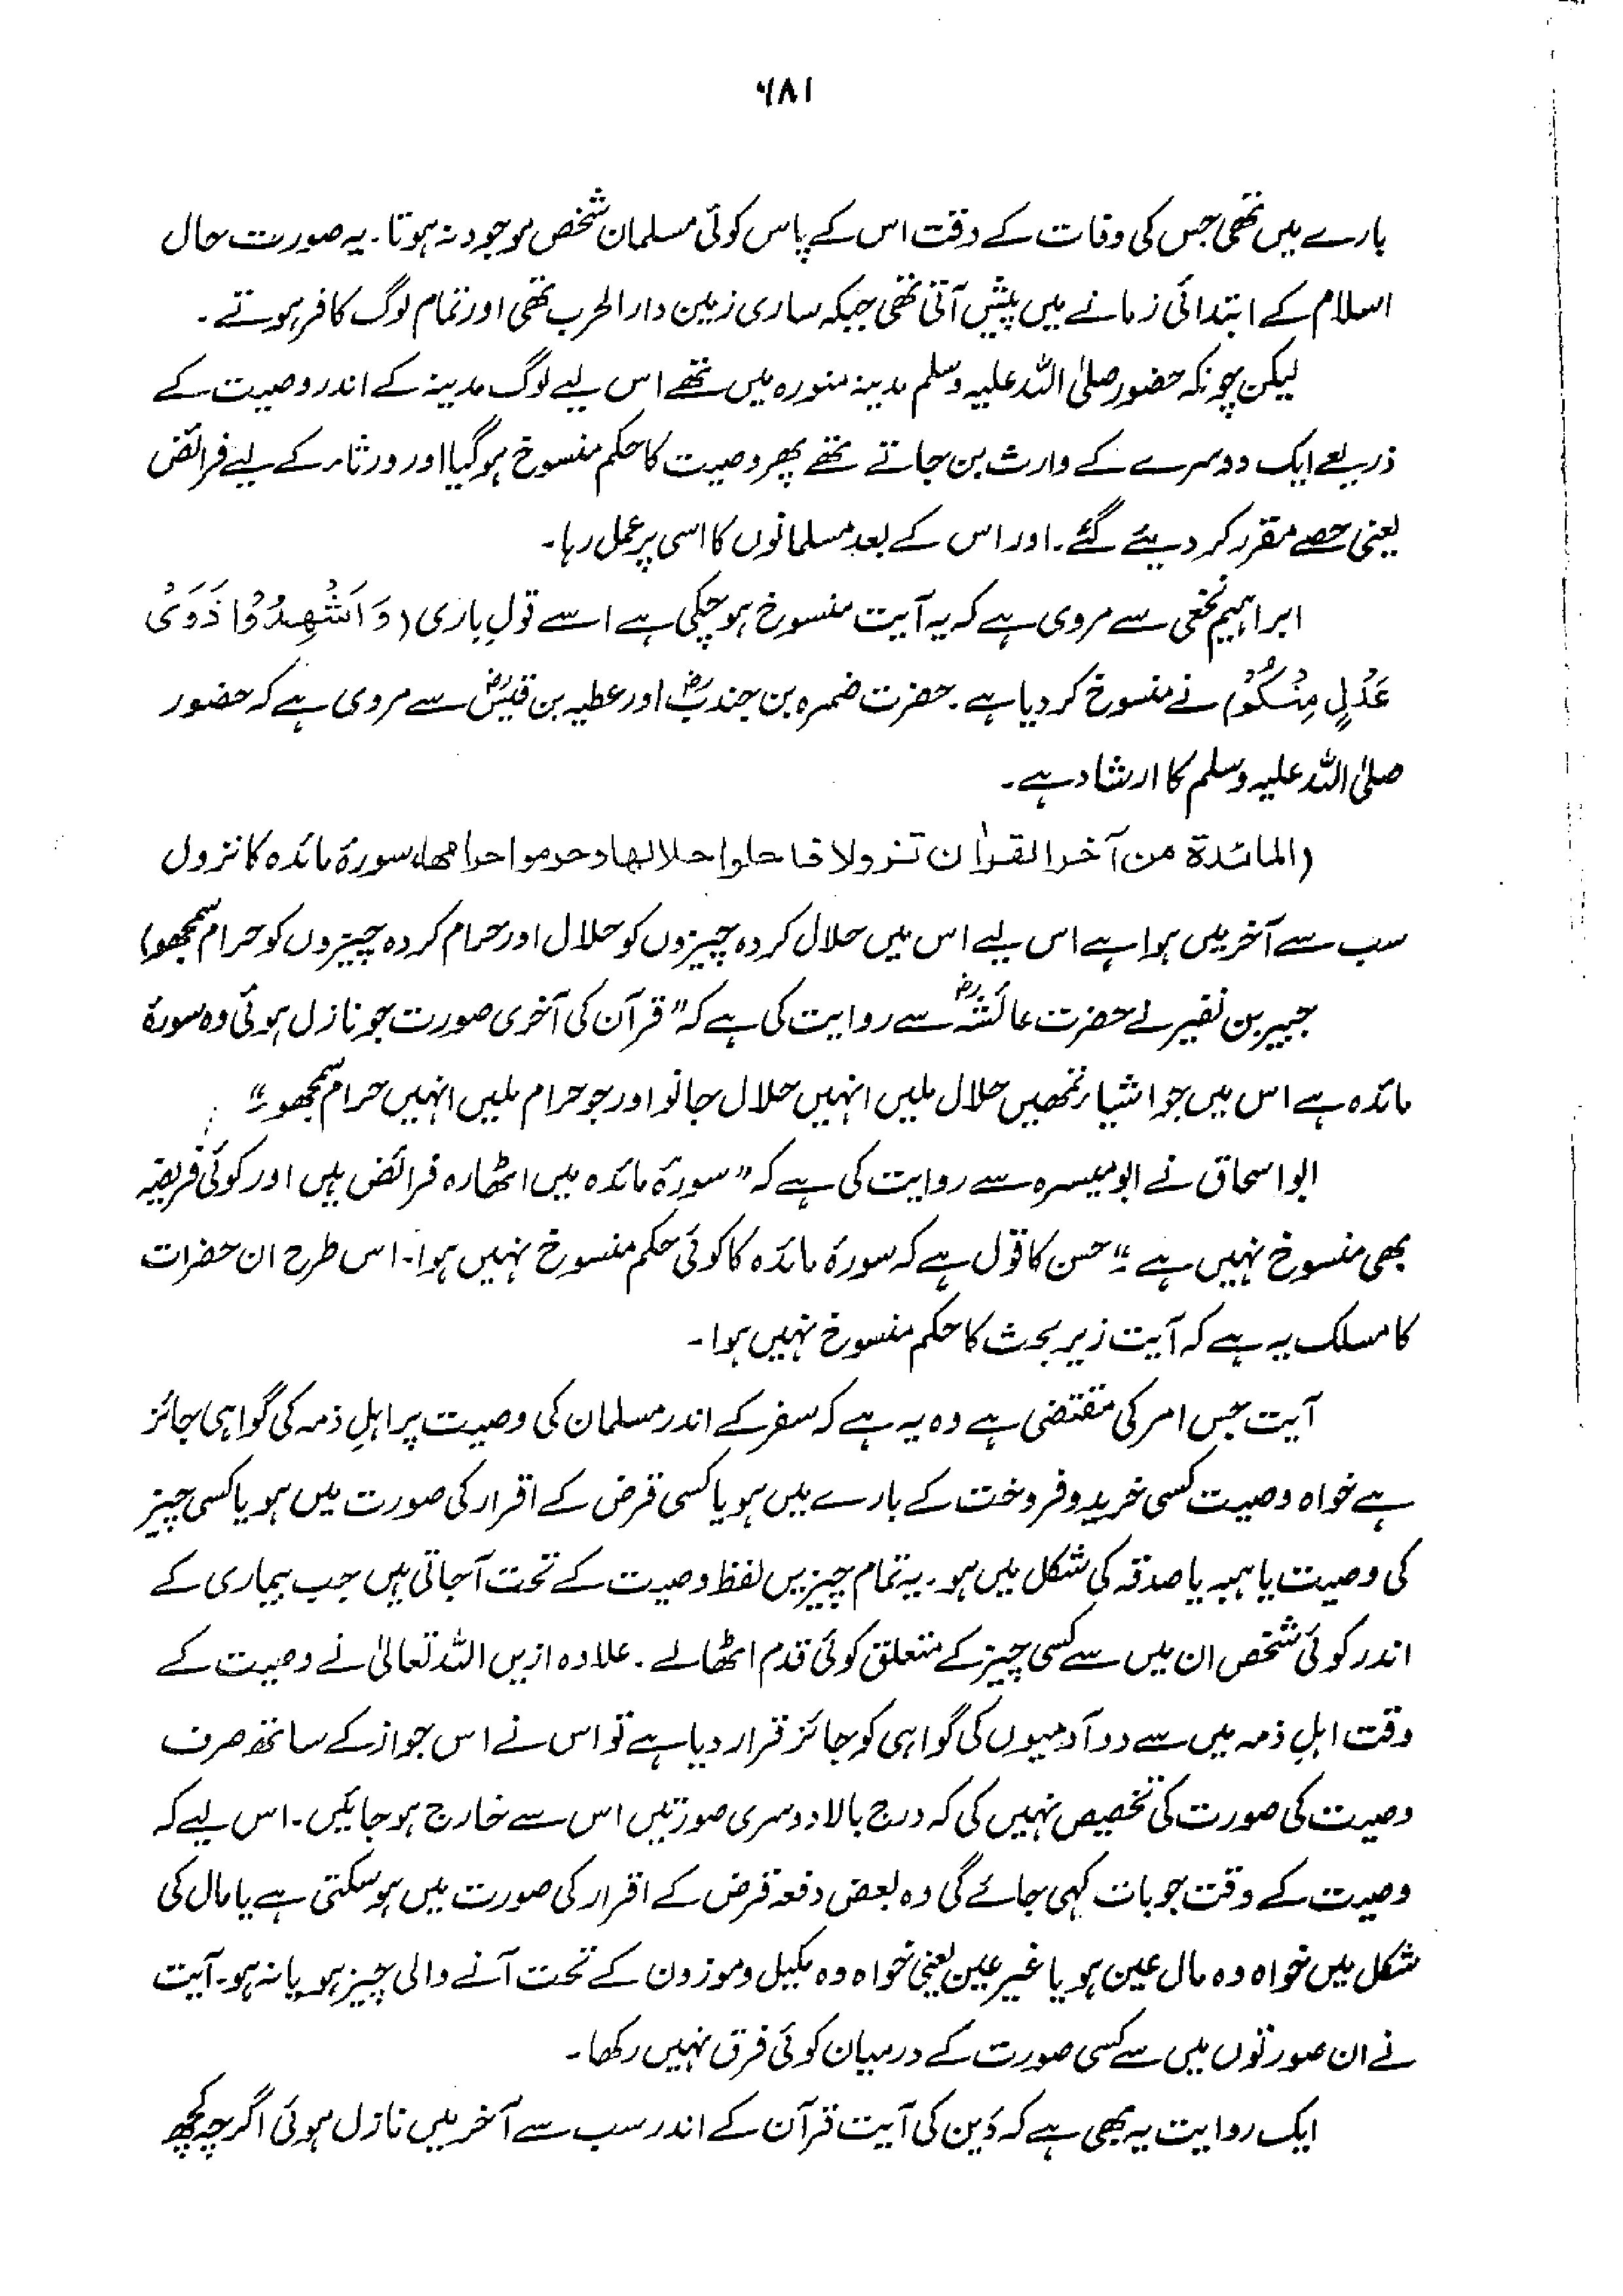 ۶۸۱
بارے میں تھی جس کی وفات کے وقت اس کے پاس کوئی مسلمان شخص موجود نہ ہوتا۔ یہ صورت حال
اسلام کے ابتدائی زمانے میں پیش آتی تھی جبکہ ساری زمین دارالحرب تھی اور تمام لوگ کافر ہوتے۔
لیکن چونکہ حضور صلی اللہ علیہ وسلم مدینہ منورہ میں تھے اس لیے لوگ مدینہ کے اندر وصیت کے
ذریعے ایک دوسرے کے وارث بن جاتے تھے پھر وصیت کا حکم منسوخ ہوگیا اور ورثاء کے لیے فرائض
یعنی حصے مقرر کر دیئے گئے۔ اور اس کے بعد مسلمانوں کا اسی پر عمل رہا۔
ابراہیم نخعی سے مروی ہے کہ یہ آیت منسوخ ہو چکی ہے اسے قولِ باری (وَاَشْهِدُوْا ذَوَیْ
عَدْلٍ مِنْكُمْ) نے منسوخ کر دیا ہے۔ حضرت ضمرہ بن جندبؓ اور عطیہ بن قیسؓ سے مروی ہے کہ حضور
صلی اللہ علیہ وسلم کا ارشاد ہے۔
(المائدة من آخر القراٰن نزولا فاحلوا حلالها وحرموا حرامها، سورۂ مائدہ کا نزول
سب سے آخر میں ہوا ہے اس لیے اس میں حلال کردہ چیزوں کو حلال اور حرام کردہ چیزوں کو حرام سمجھو)
جبیر بن نفیر نے حضرت عائشہؓ سے روایت کی ہے کہ "قرآن کی آخری صورت جو نازل ہوئی وہ سورۂ
مائدہ ہے اس میں جو اشیاء تمھیں حلال ملیں انہیں حلال جانو اور جو حرام ملیں انہیں حرام سمجھو۔"
ابو اسحاق نے ابو میسرہ سے روایت کی ہے کہ "سورۂ مائدہ میں اٹھارہ فرائض ہیں اور کوئی فریضہ
بھی منسوخ نہیں ہے۔" حسن کا قول ہے کہ سورۂ مائدہ کا کوئی حکم منسوخ نہیں ہوا۔ اس طرح ان حضرات
کا مسلک یہ ہے کہ آیت زیر بحث کا حکم منسوخ نہیں ہوا۔
آیت جس امر کی مقتضی ہے وہ یہ ہے کہ سفر کے اندر مسلمان کی وصیت پر اہلِ ذمہ کی گواہی جائز
ہے خواہ وصیت کسی خرید و فروخت کے بارے میں ہو یا کسی قرض کے اقرار کی صورت میں ہو یا کسی چیز
کی وصیت یا ہبہ یا صدقہ کی شکل میں ہو۔ یہ تمام چیزیں لفظ وصیت کے تحت آجاتی ہیں جب بیماری کے
اندر کوئی شخص ان میں سے کسی چیز کے متعلق کوئی قدم اٹھالے۔ علاوہ ازیں اللہ تعالیٰ نے وصیت کے
وقت اہلِ ذمہ میں سے دو آدمیوں کی گواہی کو جائز قرار دیا ہے تو اس نے اس جواز کے ساتھ صرف
وصیت کی صورت کی تخصیص نہیں کی کہ درج بالا دوسری صورتیں اس سے خارج ہو جائیں۔ اس لیے کہ
وصیت کے وقت جو بات کہی جائے گی وہ بعض دفعہ قرض کے اقرار کی صورت میں ہوسکتی ہے یا مال کی
شکل میں خواہ وہ مال عین ہو یا غیر عین یعنی خواہ وہ مکیل و موزون کے تحت آنے والی چیز ہو یا نہ ہو۔ آیت
نے ان صورتوں میں سے کسی صورت کے درمیان کوئی فرق نہیں رکھا۔
ایک روایت یہ بھی ہے کہ دَین کی آیت قرآن کے اندر سب سے آخر میں نازل ہوئی اگرچہ کچھ